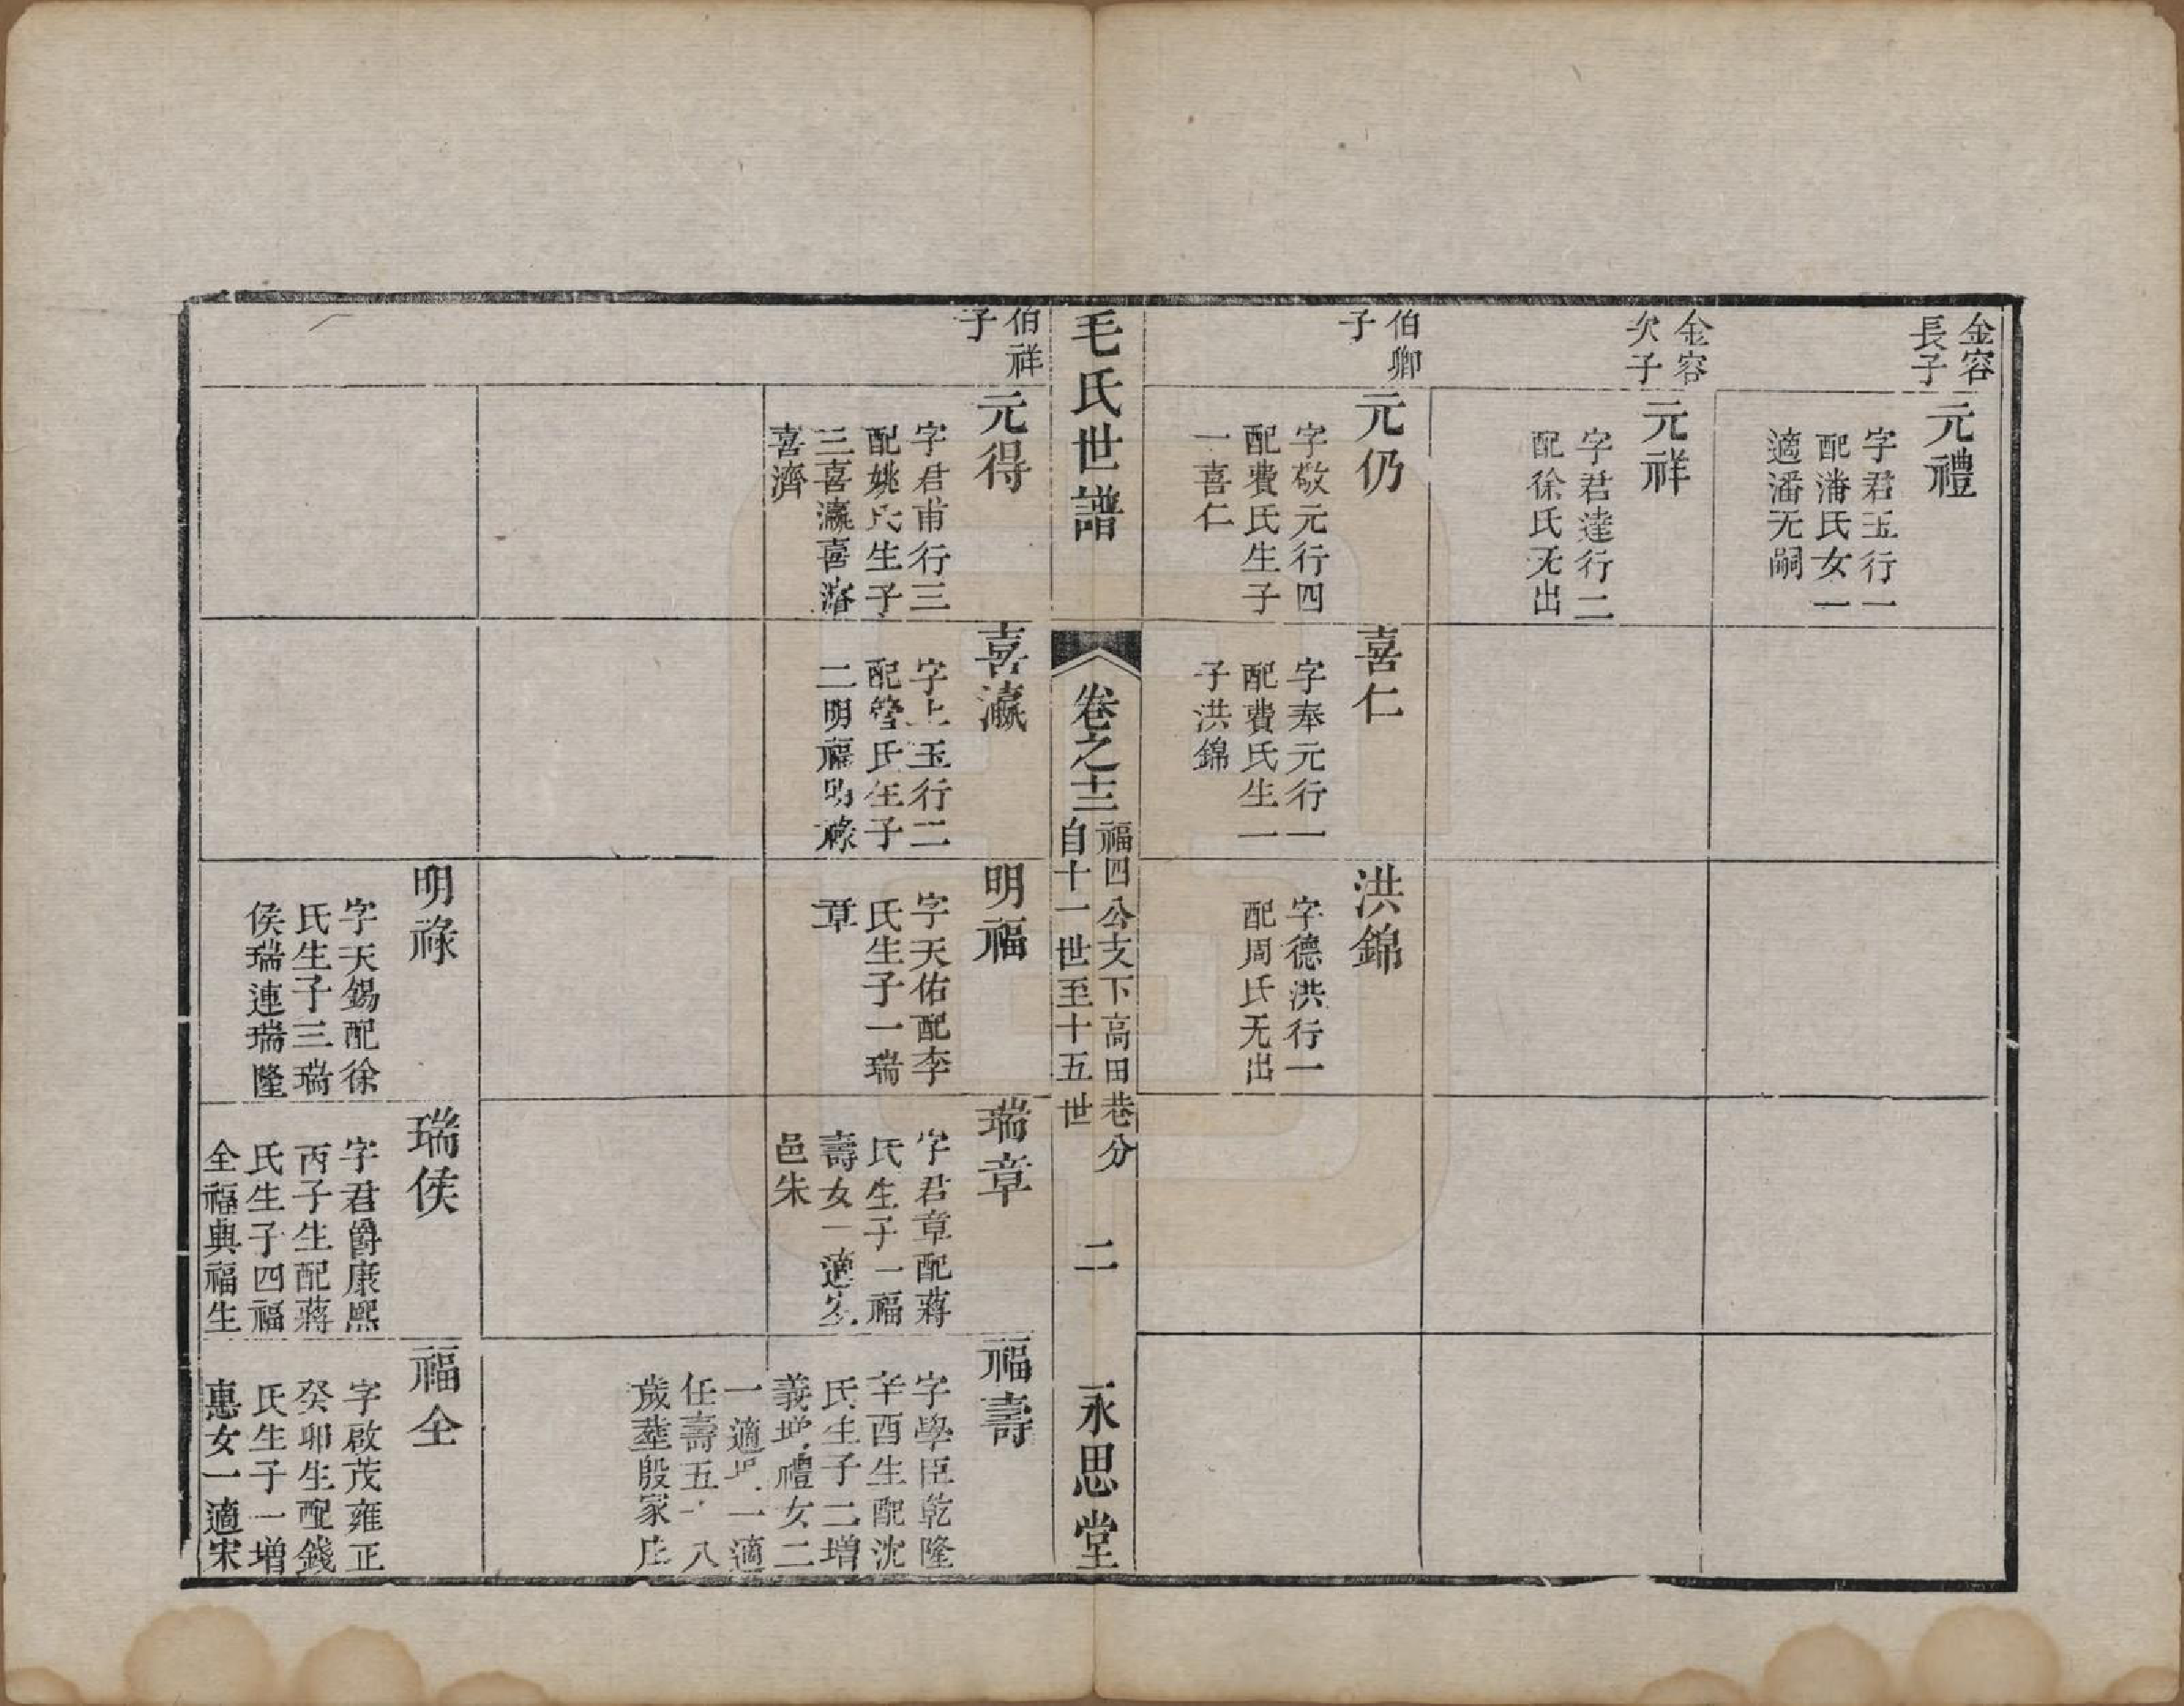 金容
長子
元禮
字君玉行一
配潘氏女一
適潘无嗣
金容
次子
元祥
字君達行二
配徐氏无出
伯卿
子
元仍
字敬元行四
配費氏生子
一喜仁
喜仁
字奉元行一
配費氏生一
子洪錦
洪錦
字德洪行一
配周氏无出
毛氏世譜
卷之十三
福四公支下高田巷分
自十一世至十五世
二
永思堂
伯祥
子
元得
字君甫行三
配姚氏生子
三喜瀛喜濬
喜濟
喜瀛
字上玉行二
配管氏生子
二明福明祿
明福
字天佑配李
氏生子一瑞
章
瑞章
字君章配蔣
氏生子一福
壽女一適
邑朱
福壽
字學臣乾隆
辛酉生配沈
氏生子二增
義增禮女二
一適 一適
任壽五十八
歲塟殷家庄
明祿
字天錫配徐
氏生子三瑞
侯瑞連瑞隆
瑞侯
字君爵康熙
丙子生配蔣
氏生子四福
全福興福生
福全
字啟茂雍正
癸卯生配錢
氏生子一增
惠女一適宋